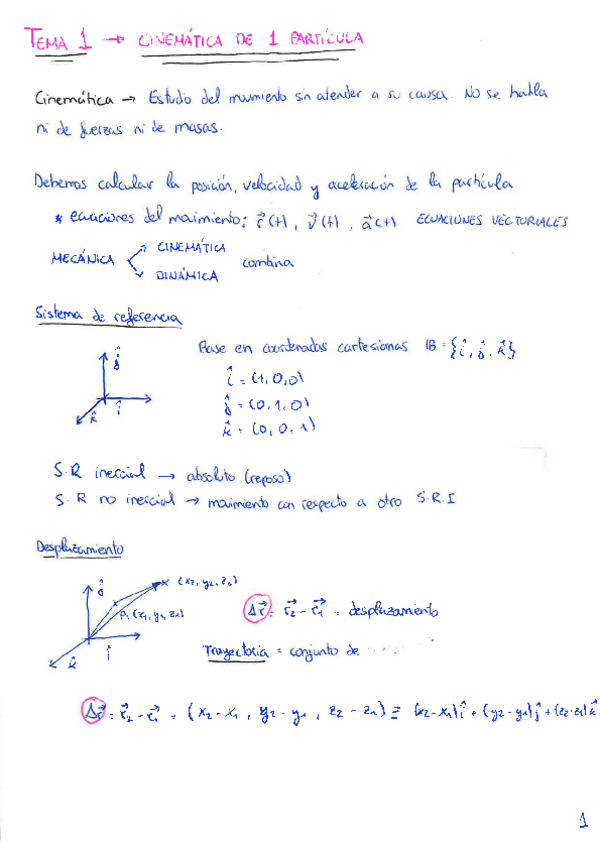 TEMA 1 → CINEMÁTICA DE 1 PARTÍCULA
Cinemática → Estudo del movimiento sin atender a su causa. No se habla
ni de fuerzas ni de masas.
Debemos calcular la posición, velocidad y aceleración de la partícula
* ecuaciones del movimiento: r⃗(t), v⃗(t), a⃗(t) ECUACIONES VECTORIALES
MECÁNICA
CINEMÁTICA
DINÁMICA
combina
Sistema de referencia
Base en coordenadas cartesianas B = {î, ĵ, k̂}
î = (1,0,0)
ĵ = (0,1,0)
k̂ = (0,0,1)
ĵ
î
k̂
S.R inercial → absoluto (reposo)
S.R no inercial → movimiento con respecto a otro S.R.I
Desplazamiento
ĵ
(x₂, y₂, z₂)
P₁ (x₁, y₁, z₁)
î
k̂
Δr⃗ = r⃗₂ - r⃗₁ = desplazamiento
Trayectoria = conjunto de
Δr⃗ = r⃗₂ - r⃗₁ = (x₂ - x₁, y₂ - y₁, z₂ - z₁) ≡ (x₂-x₁)î + (y₂-y₁)ĵ + (z₂-z₁)k̂
1